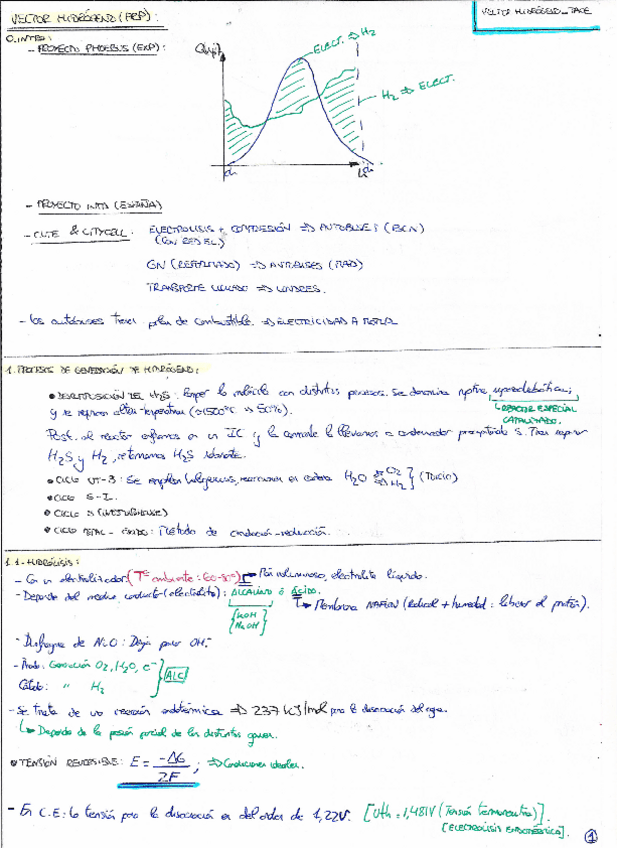 VECTOR HIDRÓGENO (AEP):
VECTOR HIDRÓGENO_TAGE
0. INTRO:
- PROYECTO PHOEBUS (EXP):
ELECT. ⇒ H₂
H₂ ⇒ ELECT.
- PROYECTO INTA (ESPAÑA)
- CUTE & CITYCELL. ELECTROLISIS + COMPRESIÓN ⇒ AUTOBUSES (BCN)
(CON RED EL.)
GN (REFORMADO) ⇒ AUTOBUSES (MAD)
TRANSPORTE LICUADO ⇒ LONDRES.
- Los autobuses tienen pilas de combustible. ⇒ ELECTRICIDAD A
1. PROCESOS DE GENERACIÓN DE HIDRÓGENO:
• DEL H₂S: Romper la molécula con distintos procesos. Se denomina
y se requieren altas temperaturas (≈1500°C ⇒ 50%).
↳ REACTOR ESPECIAL
CATALIZADO.
Post. al reactor enfriamos en un IC y la corriente la llevamos a condensador S. Tras separar
H₂S y H₂, retornamos H₂S
• CICLO UT-3: Se emplean halógenos, H₂O ⇒ O₂ ⇒ H₂ } (TOKIO)
• CICLO S-I.
• CICLO S (WESTINGHOUSE)
• CICLO METAL - ÓXIDO: Método de reducción.
1.1.- HIDRÓLISIS:
- En un electrolizador (Tª ambiente: 60-80°) Más voluminoso, electrolito líquido.
- Depende del medio conductor (electrolito): ALCALINO ó ÁCIDO.
↳ Membrana NAFION (radical + humedad: liberar el protón).
{ KOH
NaOH }
- Diafragma de NiO: Deja pasar OH⁻.
- Ánodo: Generación O₂, H₂O, e⁻
Cátodo: " H₂
} ALC
- Se trata de una reacción endotérmica ⇒ 237 kJ/mol para la disociación del agua.
↳ Depende de la presión parcial de los distintos gases.
• TENSIÓN REVERSIBLE: E = -ΔG / 2F ; ⇒ Condiciones ideales.
- En C.E: la tensión para la disociación es del orden de 1,22V. [Uth = 1,481V (Tensión termoneutra)].
[ELECTROLISIS ENDOTÉRMICA].
1